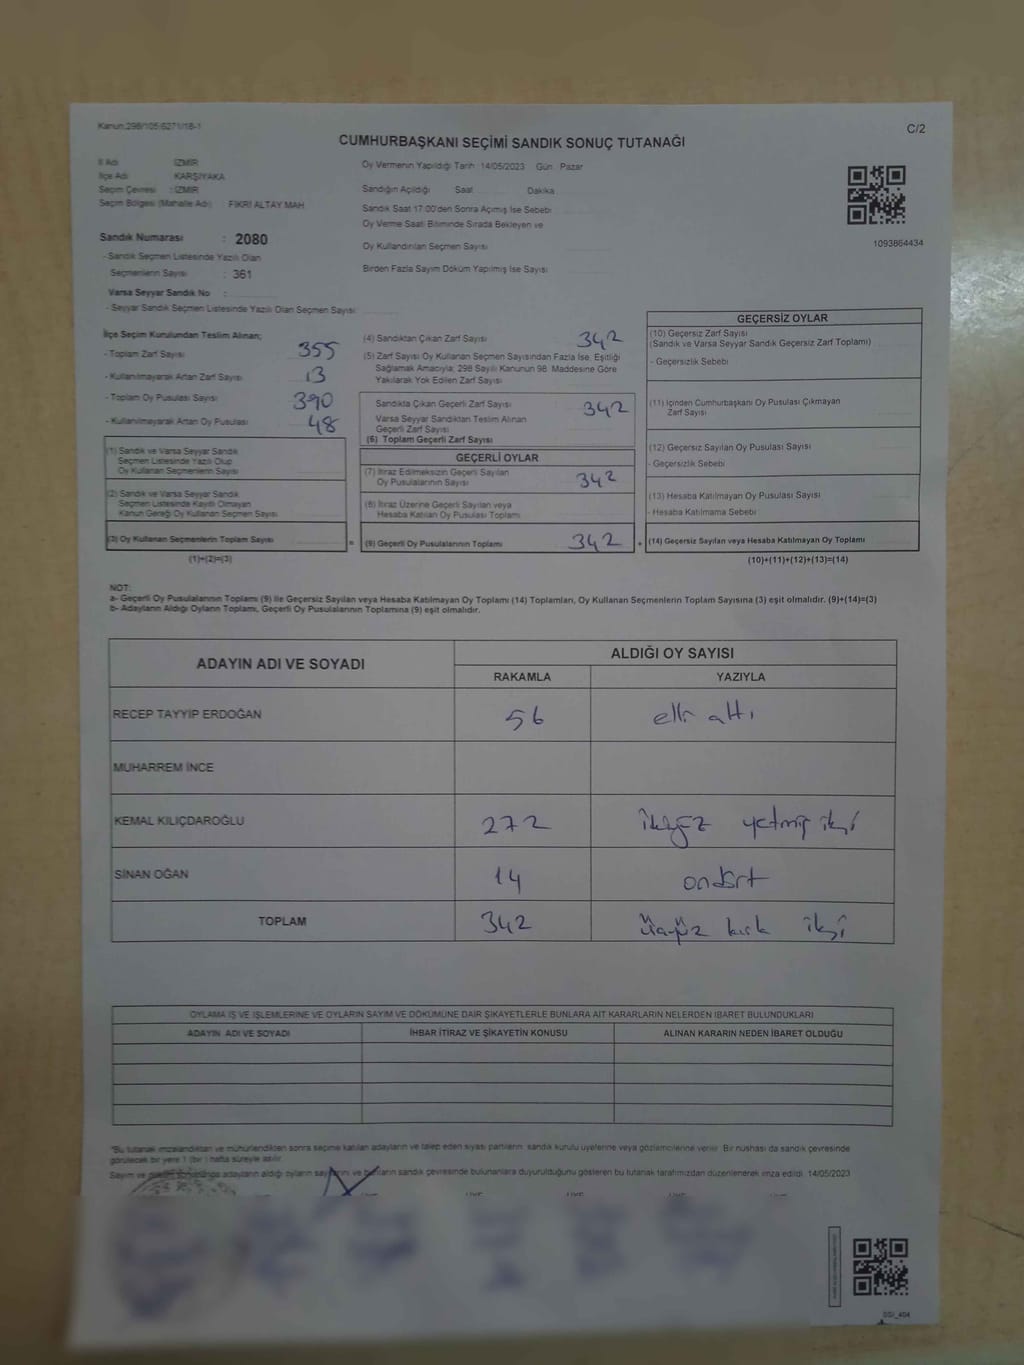 Kanun:298/105;6271/18-1
C/2
CUMHURBAŞKANI SEÇİMİ SANDIK SONUÇ TUTANAĞI
İl Adı İZMİR
İlçe Adı KARŞIYAKA
Seçim Çevresi : İZMİR
Seçim Bölgesi (Mahalle Adı) FİKRİ ALTAY MAH
Sandık Numarası : 2080
- Sandık Seçmen Listesinde Yazılı Olan
Seçmenlerin Sayısı : 361
Varsa Seyyar Sandık No :
- Seyyar Sandık Seçmen Listesinde Yazılı Olan Seçmen Sayısı:
Oy Vermenin Yapıldığı Tarih :14/05/2023 Gün: Pazar
Sandığın Açıldığı Saat Dakika
Sandık Saat 17:00'den Sonra Açılmış İse Sebebi
Oy Verme Saati Bitiminde Sırada Bekleyen ve
Oy Kullandırılan Seçmen Sayısı
Birden Fazla Sayım Döküm Yapılmış İse Sayısı
1093864434
İlçe Seçim Kurulundan Teslim Alınan;
- Toplam Zarf Sayısı 355
- Kullanılmayarak Artan Zarf Sayısı 13
- Toplam Oy Pusulası Sayısı 390
- Kullanılmayarak Artan Oy Pusulası 48
(1) Sandık ve Varsa Seyyar Sandık
Seçmen Listesinde Yazılı Olup
Oy Kullanan Seçmenlerin Sayısı
(2) Sandık ve Varsa Seyyar Sandık
Seçmen Listesinde Kayıtlı Olmayan
Kanun Gereği Oy Kullanan Seçmen Sayısı
(3) Oy Kullanan Seçmenlerin Toplam Sayısı
(1)+(2)=(3)
(4) Sandıktan Çıkan Zarf Sayısı 342
(5) Zarf Sayısı Oy Kullanan Seçmen Sayısından Fazla İse, Eşitliği
Sağlamak Amacıyla; 298 Sayılı Kanunun 98. Maddesine Göre
Yakılarak Yok Edilen Zarf Sayısı
Sandıkta Çıkan Geçerli Zarf Sayısı 342
Varsa Seyyar Sandıktan Teslim Alınan
Geçerli Zarf Sayısı
(6) Toplam Geçerli Zarf Sayısı
GEÇERLİ OYLAR
(7) İtiraz Edilmeksizin Geçerli Sayılan
Oy Pusulalarının Sayısı 342
(8) İtiraz Üzerine Geçerli Sayılan veya
Hesaba Katılan Oy Pusulası Toplamı
= (9) Geçerli Oy Pusulalarının Toplamı 342
GEÇERSİZ OYLAR
(10) Geçersiz Zarf Sayısı
(Sandık ve Varsa Seyyar Sandık Geçersiz Zarf Toplamı)
- Geçersizlik Sebebi
(11) İçinden Cumhurbaşkanı Oy Pusulası Çıkmayan
Zarf Sayısı
(12) Geçersiz Sayılan Oy Pusulası Sayısı
- Geçersizlik Sebebi
(13) Hesaba Katılmayan Oy Pusulası Sayısı
- Hesaba Katılmama Sebebi
+ (14) Geçersiz Sayılan veya Hesaba Katılmayan Oy Toplamı
(10)+(11)+(12)+(13)=(14)
NOT:
a- Geçerli Oy Pusulalarının Toplamı (9) ile Geçersiz Sayılan veya Hesaba Katılmayan Oy Toplamı (14) Toplamları, Oy Kullanan Seçmenlerin Toplam Sayısına (3) eşit olmalıdır. (9)+(14)=(3)
b- Adayların Aldığı Oyların Toplamı, Geçerli Oy Pusulalarının Toplamına (9) eşit olmalıdır.
ADAYIN ADI VE SOYADI ALDIĞI OY SAYISI
RAKAMLA YAZIYLA
RECEP TAYYİP ERDOĞAN 56 elli altı
MUHARREM İNCE
KEMAL KILIÇDAROĞLU 272 ikiyüz yetmiş iki
SİNAN OĞAN 14 ondört
TOPLAM 342 üçyüz kırk iki
OYLAMA İŞ VE İŞLEMLERİNE VE OYLARIN SAYIM VE DÖKÜMÜNE DAİR ŞİKAYETLERLE BUNLARA AİT KARARLARIN NELERDEN İBARET BULUNDUKLARI
ADAYIN ADI VE SOYADI İHBAR İTİRAZ VE ŞİKAYETİN KONUSU ALINAN KARARIN NEDEN İBARET OLDUĞU
*Bu tutanak imzalandıktan ve mühürlendikten sonra seçime katılan adayların ve talep eden siyasi partilerin sandık kurulu üyelerine veya gözlemcilerine verilir. Bir nüshası da sandık çevresinde
görülecek bir yere 1 (bir) hafta süreyle asılır.
Sayım ve adayların aldığı oyların sayılarını ve bunların sandık çevresinde bulunanlara duyurulduğunu gösteren bu tutanak tarafımızdan düzenlenerek imza edildi. 14/05/2023